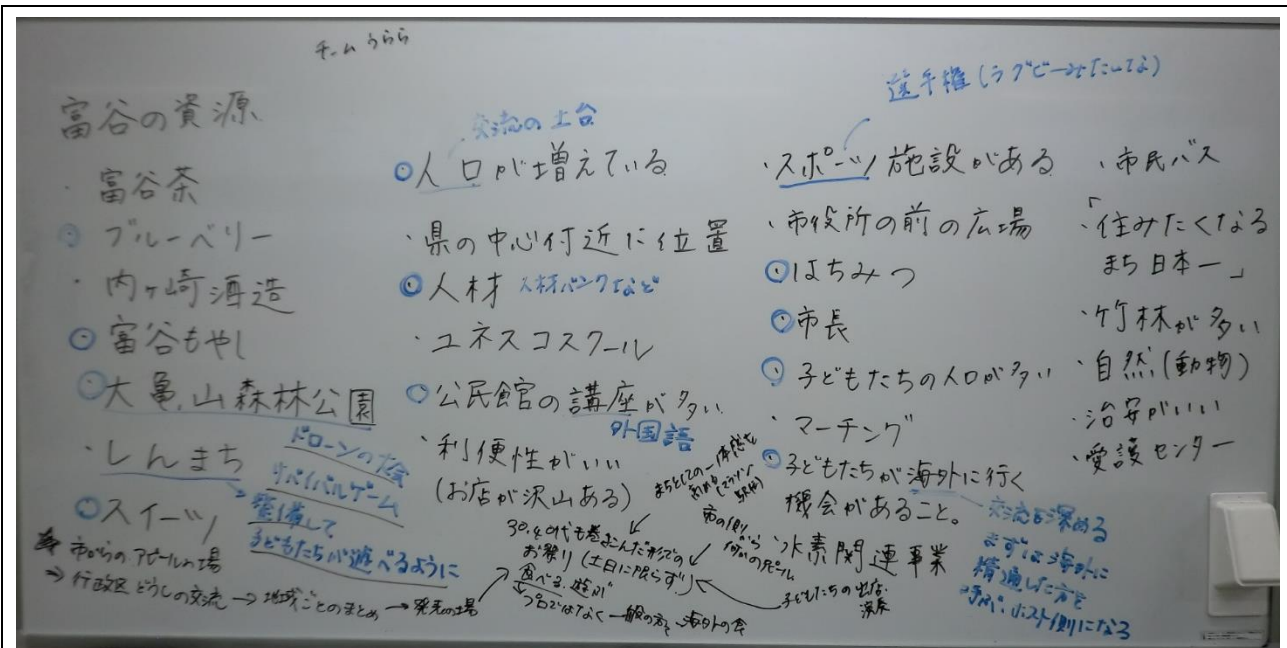 チーム うらら
富谷の資源
・富谷茶
・ブルーベリー
・内ヶ崎酒造
・富谷もやし
・大亀山森林公園
・しんまち
・スイーツ
ドローンの大会
サバイバルゲーム
整備して
子どもたちが遊べるように
市からのアピールの場
⇒行政区どうしの交流→地域ごとのまとめ→発表の場
交流の土台
人口が増えている
・県の中心付近に位置
・人材 人材バンクなど
・ユネスコスクール
・公民館の講座が多い
外国語
・利便性がいい
(お店が沢山ある)
まちとしての一体感を
30.40代も巻きこんだ形での
お祭り(土日に限らず)
食べる、遊ぶ
プロではなく一般の方で
海外の食
市の側から
何かのアピール
子どもたちの出店
演奏
選手権(ラグビーみたいな)
・スポーツ施設がある
・市役所の前の広場
・はちみつ
・市長
・子どもたちの人口が多い
・マーチング
・子どもたちが海外に行く
機会があること。
・水素関連事業
交流を深める
まずは海外に
精通した方を
呼ぶ、ホスト側になる
・市民バス
・「住みたくなる
まち日本一」
・竹林が多い
・自然(動物)
・治安がいい
・愛護センター